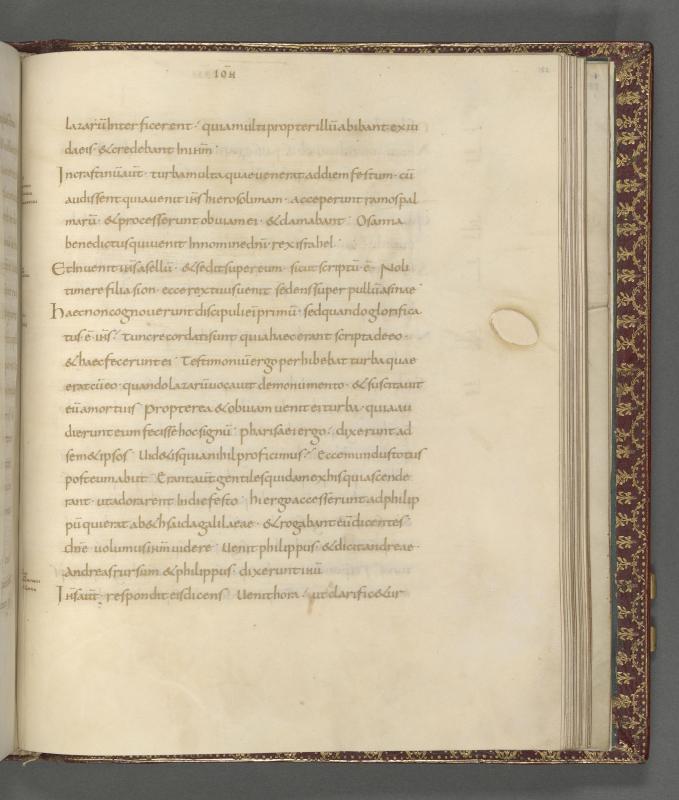 IOH
182
lazarū Interficerent · quia multi propter illū abibant ex iu
daeis · & credebant In ihm̄ ·
In crastinū aut̄ · turba multa quae venerat ad diem festum · cū
audissent quia venit ih̄s hierosolimam · acceperunt ramos pal
marū · & processerunt obuiam ei · & clamabant Osanna
benedictus qui uenit In nomine dn̄i · rex israhel ·
Et Inuenit ih̄s asellū · & sedit super eum · sicut scriptū ē · Noli
timere filia sion · ecce rex tuus uenit sedens super pullū asinae
Haec non cognouerunt discipuli ei primū · sed quando glorifica
tus ē ih̄s · Tunc recordati sunt quia haec erant scripta de eo ·
& haec fecerunt ei Testimoniū ergo perhibebat turba quae
erat cū eo · quando lazarū uocauit de monumento · & suscitauit
eū a mortuis Propterea & obuiam uenit ei turba · quia au
dierunt eum fecisse hoc signū pharisaei ergo · dixerunt ad
sem& ipsos Uid&is quia nihil proficimus Ecce mundus totus
post eum abiit Erant aut̄ gentiles quidam ex his qui ascende
rant · ut adorarent In die festo · hi ergo accesserunt ad philip
pū qui erat a b&hsaida galilaeae · & rogabant eū dicentes
dn̄e uolumus ihm̄ uidere Uenit philippus · & dicit andreae
Andreas rursum & philippus · dixerunt ihū
Ih̄s aut̄ · respondit eis dicens Uenit hora · ut clarific&ur